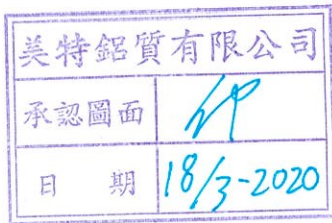 美特鋁質有限公司
承認圖面
日 期 18/3-2020